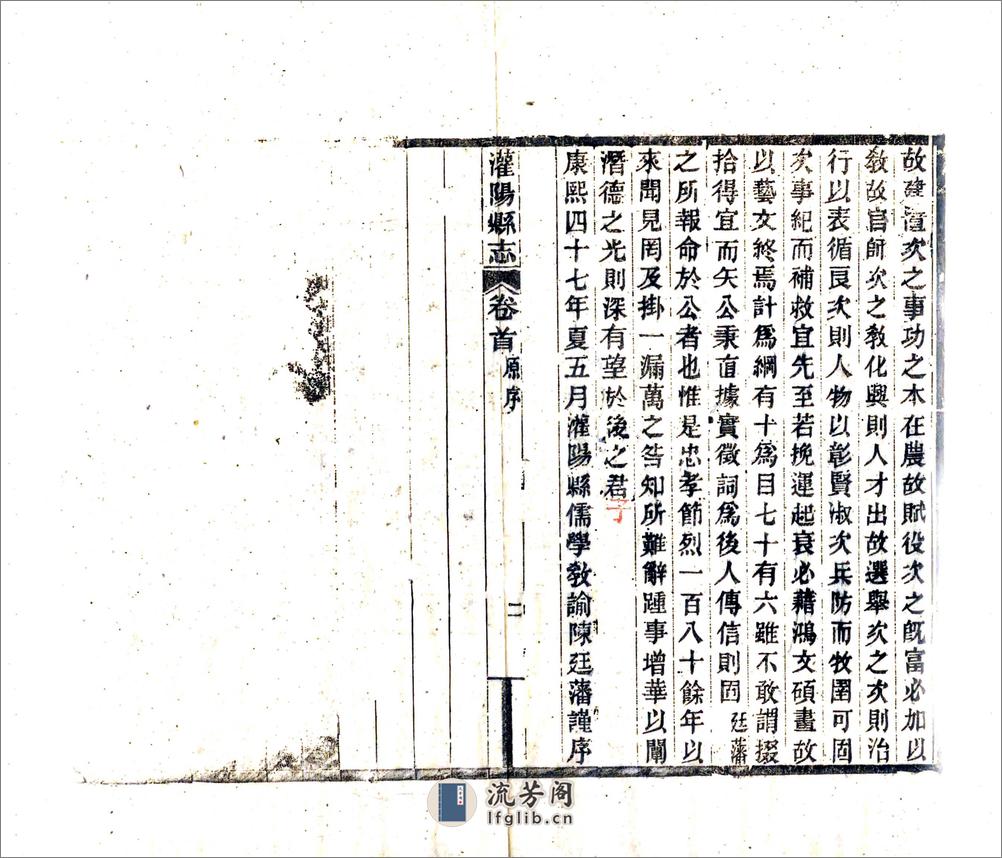 故建置次之事功之本在農故賦役次之既富必加以
敎故官師次之敎化興則人才出故選舉次之次則治
行以表循良次則人物以彰賢淑次兵防而牧圉可固
次事紀而補救宜先至若挽運起衰必藉鴻文碩畫故
以藝文終焉計爲綱有十爲目七十有六雖不敢謂掇
拾得宜而矢公秉直據實徵詞爲後人傳信則固廷藩
之所報命於公者也惟是忠孝節烈一百八十餘年以
來聞見罔及掛一漏萬之咎知所難辭踵事增華以闡
潛德之光則深有望於後之君子
康熙四十七年夏五月灌陽縣儒學敎諭陳廷藩謹序
灌陽縣志 卷首 原序 二
流芳阁
lfglib.cn